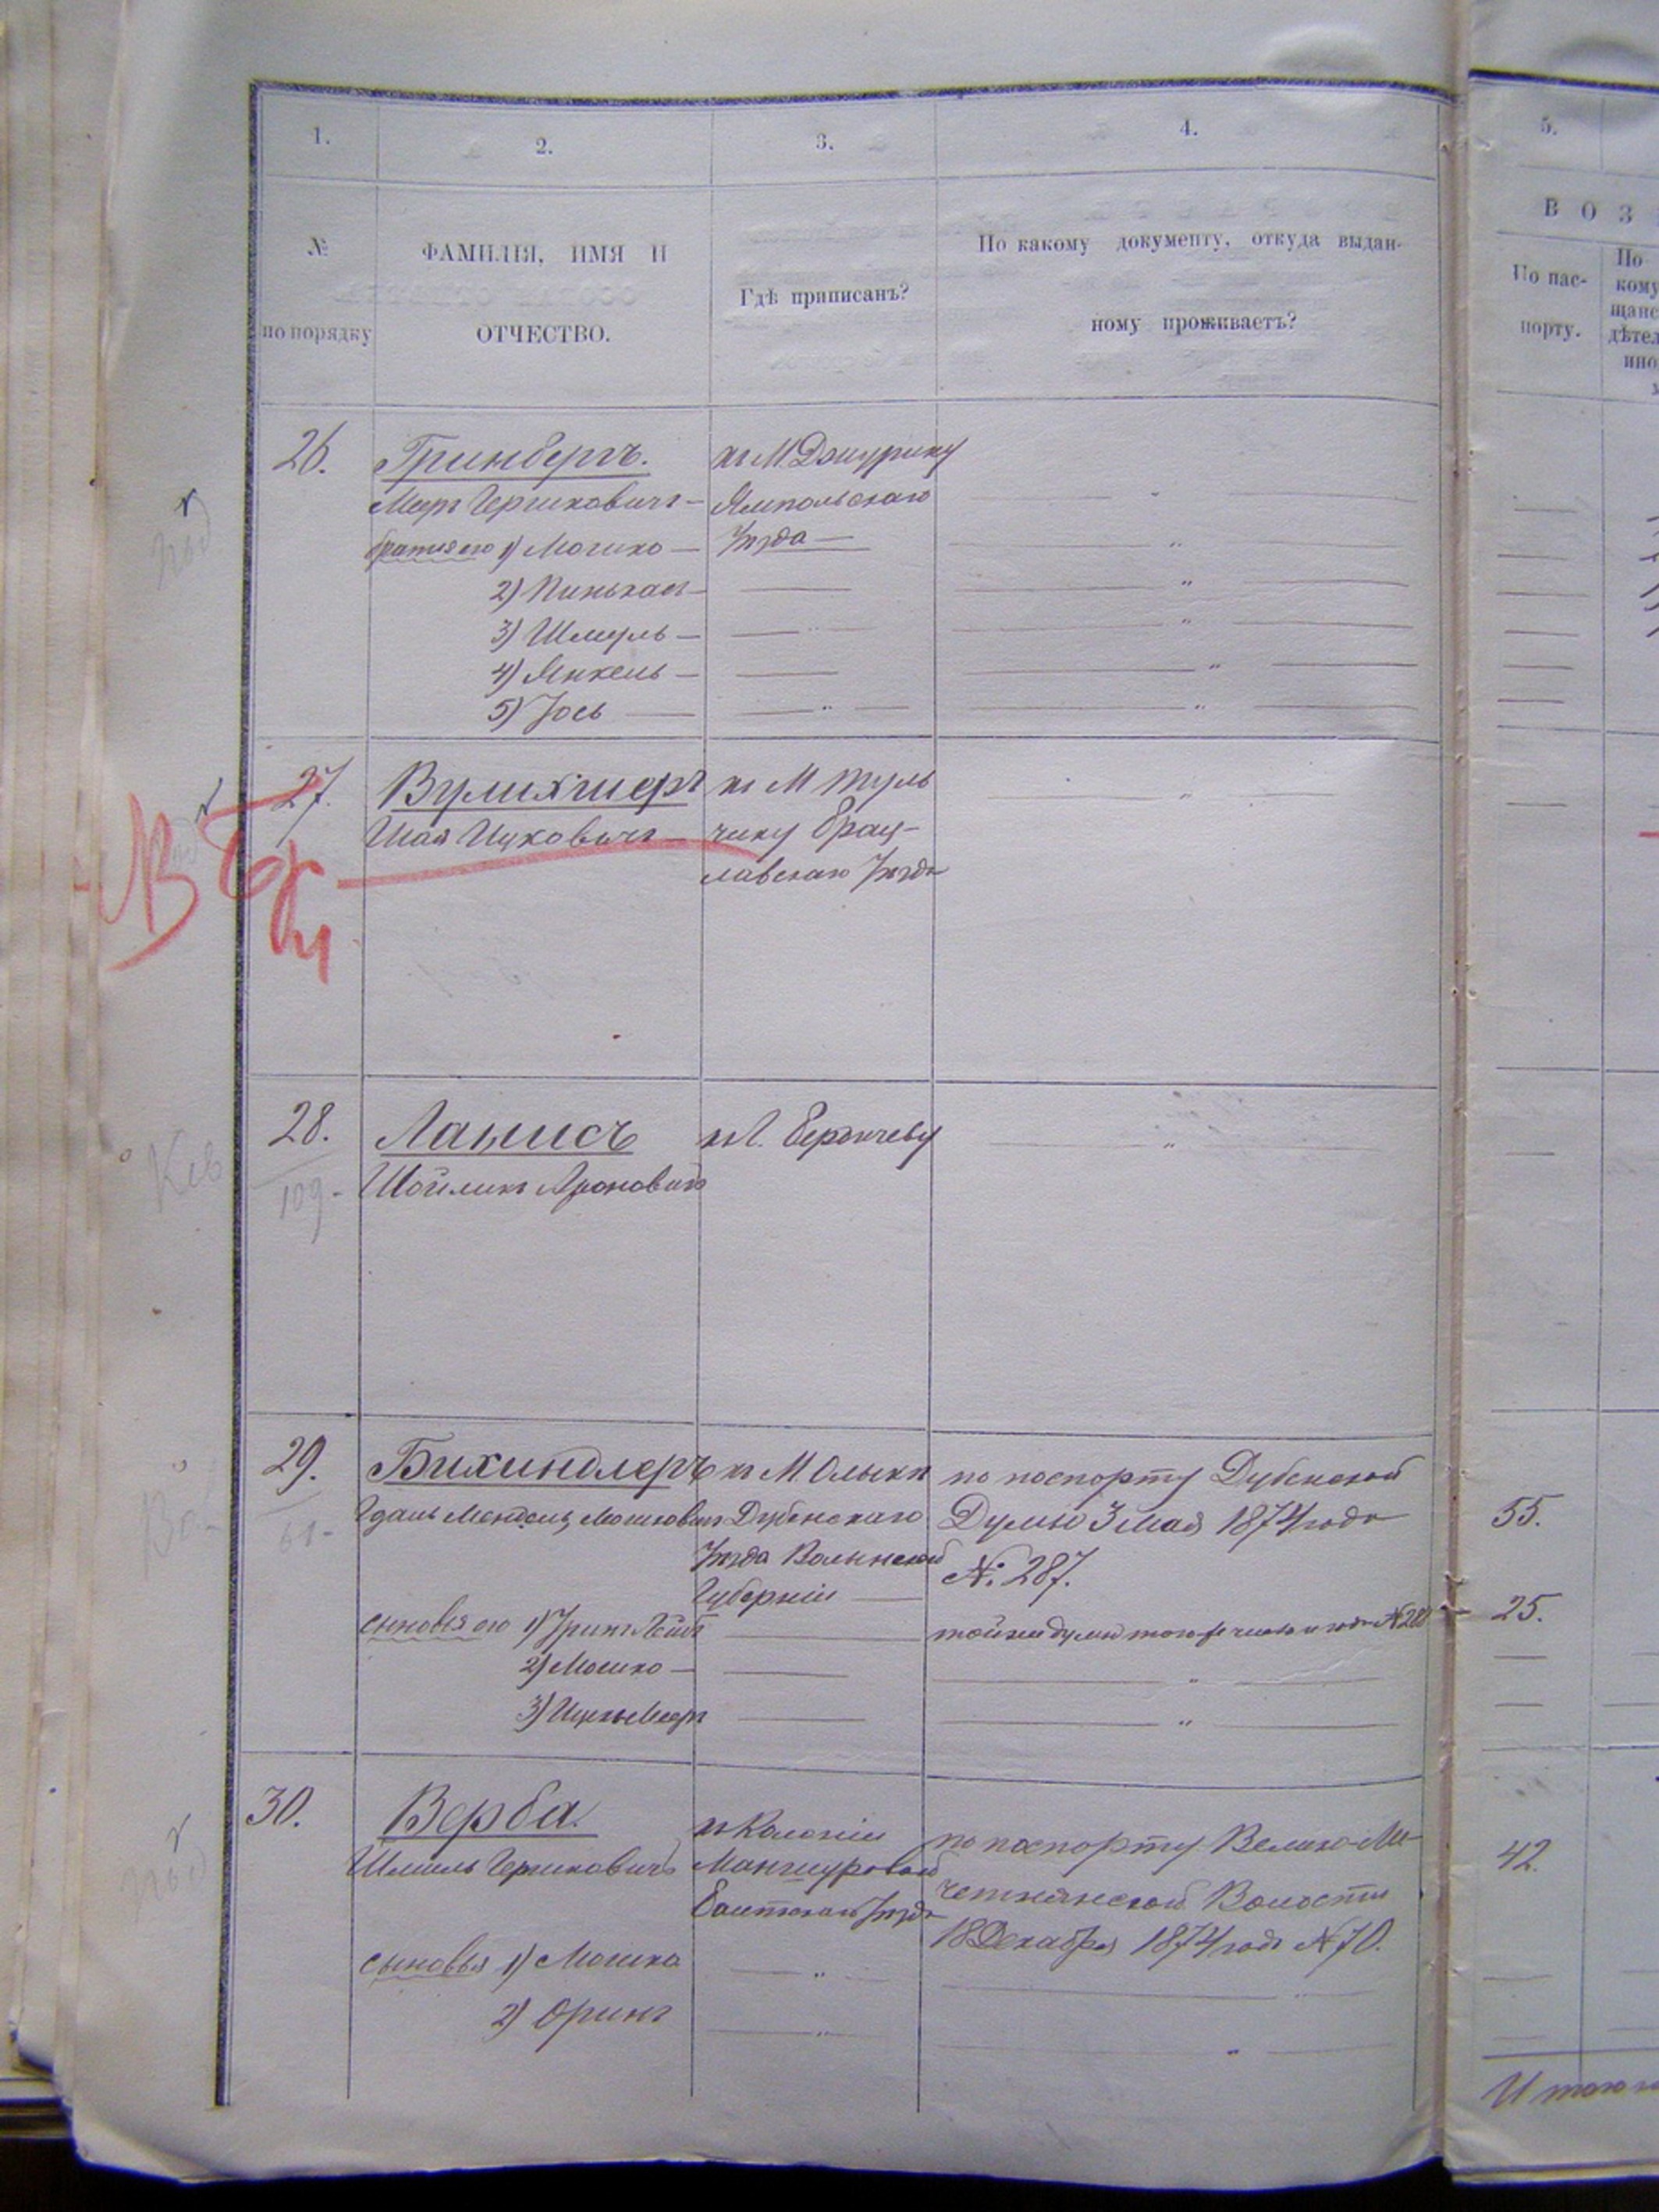 1.
2.
3.
4.
5.
№
по порядку
ФАМИЛІЯ, ИМЯ И
ОТЧЕСТВО.
Гдѣ приписанъ?
По какому документу, откуда выдан-
ному проживаетъ?
В О З
По пас-
порту.
По
кому
щанс
дѣтел
ино
26.
Гринбергъ.
Мееръ Гершковичъ —
братья его 1) Мошко —
2) Пинькасъ —
3) Шмуль —
4) Янкель —
5) Іось —
къ М. Джурину
Ямпольскаго
Уѣзда —
27.
Вулихшеръ
Шая Ицковичъ —
къ М Туль
чину Брац-
лавскаго Уѣзда
28.
109.
Ланисъ
Шойликъ Ароновичъ
къ г. Бердичеву
29.
61
Бихиндлеръ
Мендель Мошковичъ
сыновья его 1) Лейбъ
2) Мошко —
3) Ицко Мееръ
къ М. Олыки
Дубенскаго
Уѣзда Волынской
Губерніи —
по паспорту Дубенской
Думы 3 мая 1874 года
№ 287.
той же думы того же числа и года №
55.
25.
30.
Верба.
Шмиль Гершковичъ
сыновья 1) Мошко
2) Оринъ
къ Колоніи
Маншуровой
Балтскаго Уѣзда
по паспорту Велико-Ме-
четнянской Волости
18 Декабря 1874 года № 70.
42.
Итого